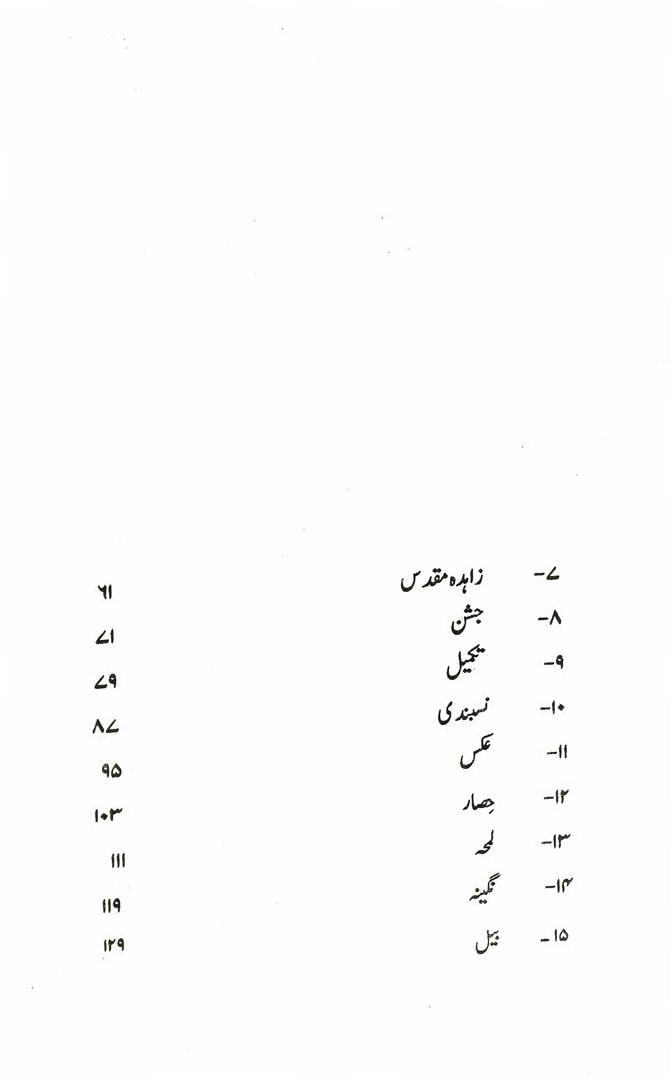 ۷- زاہدہ مقدس ۶۱
۸- جشن ۷۱
۹- تکمیل ۷۹
۱۰- نسبندی ۸۷
۱۱- عکس ۹۵
۱۲- حِصار ۱۰۳
۱۳- لمحہ ۱۱۱
۱۴- نگینہ ۱۱۹
۱۵- بیل ۱۲۹